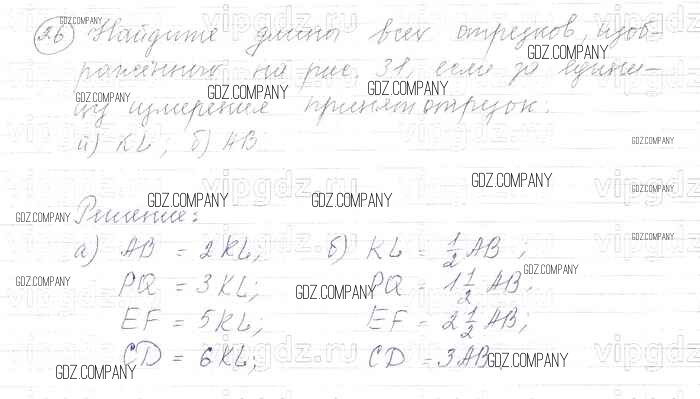 26 Найдите длины всех отрезков, изоб-
ражённых на рис. 31, если за едини-
цу измерения принят отрезок:
а) KL; б) AB
Решение:
а) AB = 2KL; б) KL = 1/2 AB;
PQ = 3KL; PQ = 1 1/2 AB;
EF = 5KL; EF = 2 1/2 AB;
CD = 6KL; CD = 3AB
GDZ.COMPANY
vipgdz.ru